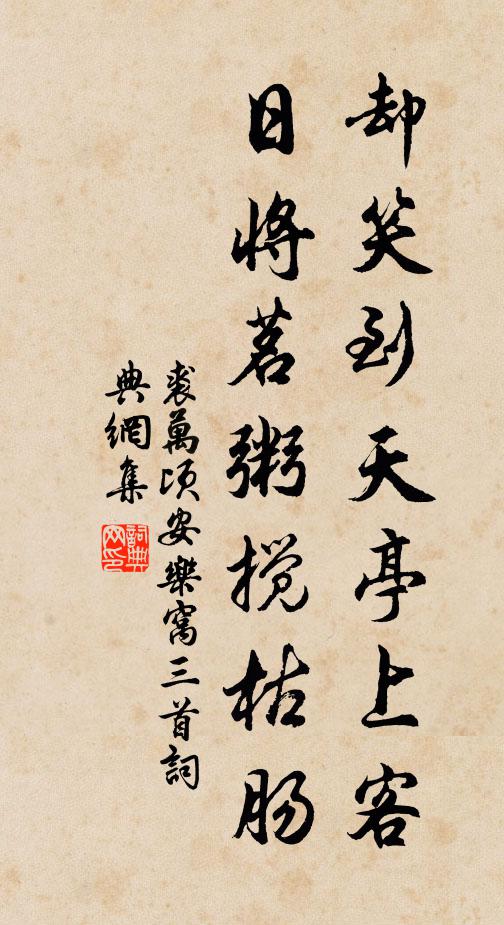 却笑到天亭上客
日将茗粥搅枯肠
裘萬頃安樂窩三首詞
典網集
詞典
网印